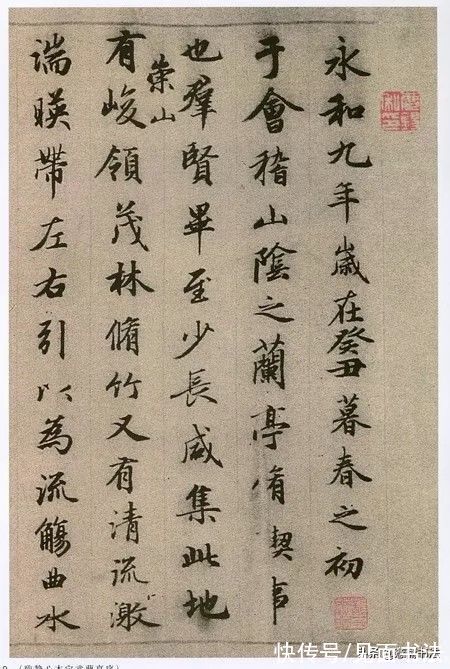 永和九年歲在癸丑暮春之初
于會稽山陰之蘭亭脩契事
也羣賢畢至少長咸集此地
崇山
有峻領茂林脩竹又有清流激
湍暎帶左右引以為流觴曲水
快传号